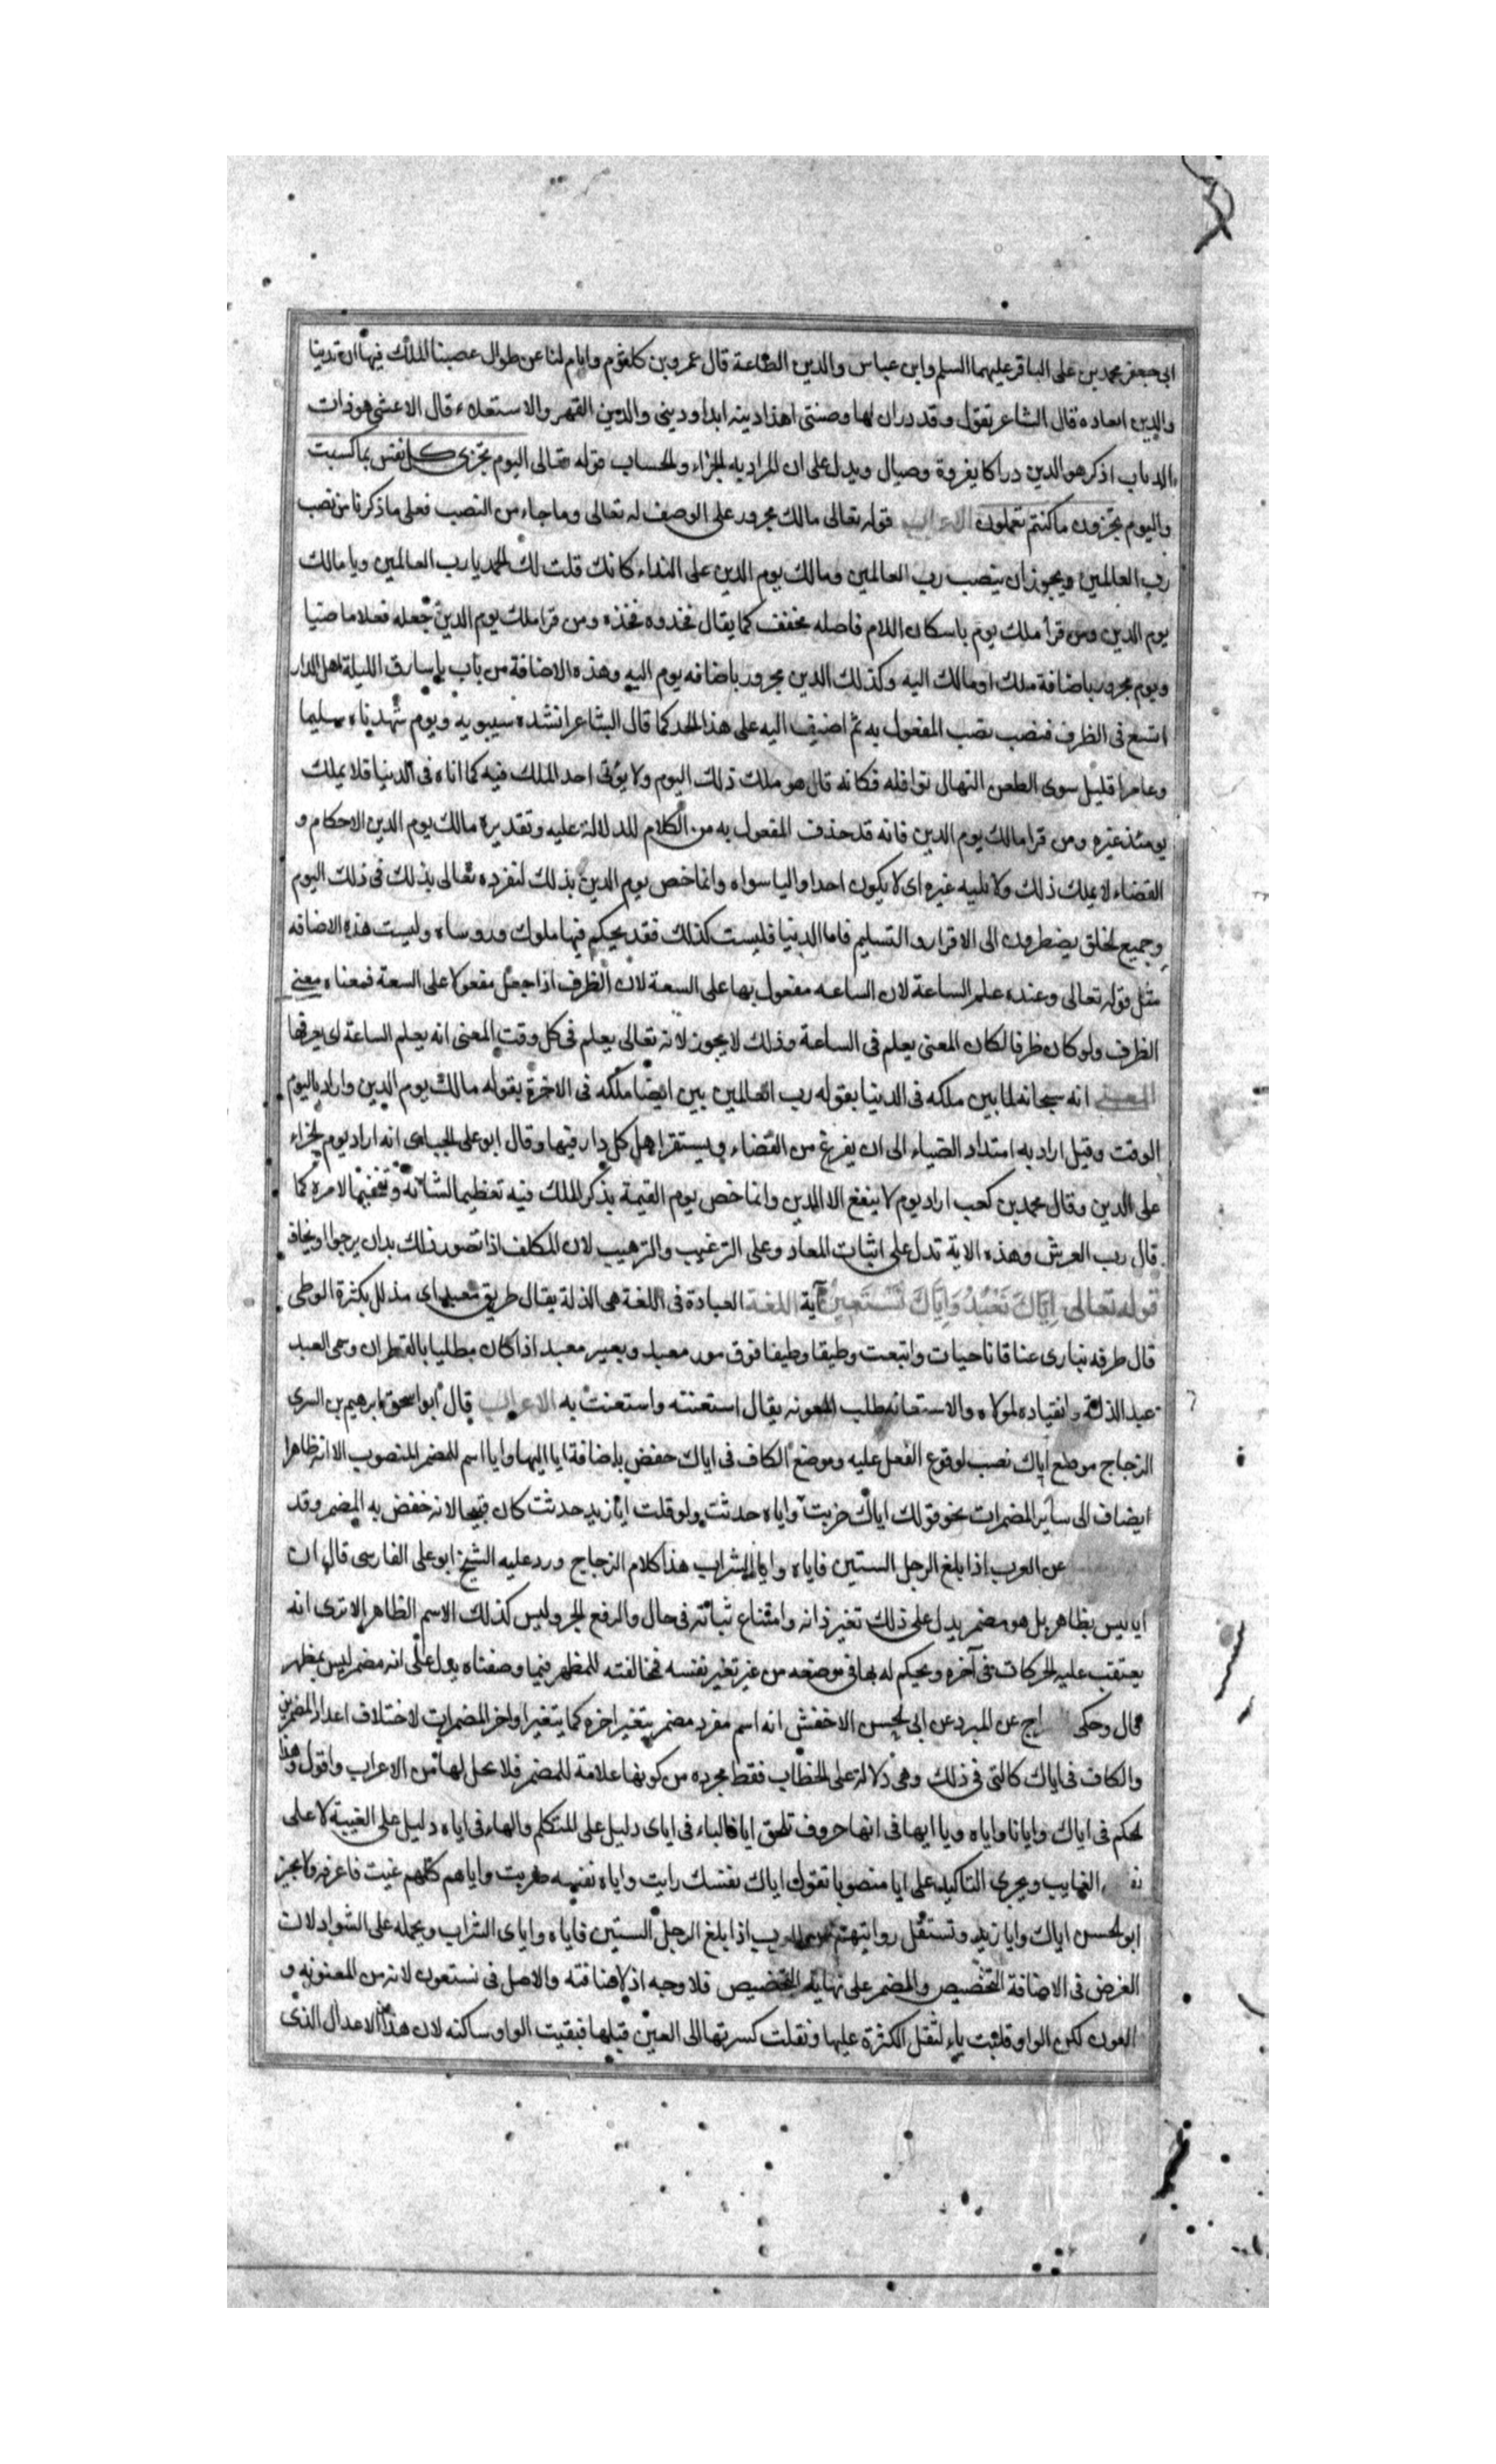 ابى جعفر محمد بن على الباقر عليهما السلم وابن عباس والدين الطاعة قال عمرو بن كلثوم وايام لنا عن طوال عصينا الملك فيها ان ندينا
والدين العاده قال الشاعر تقول وقد دران لها وضينى اهذا دينه ابدا ودينى والدين القهر والاستعلاء قال الاعشى هو ذات
الدباب اذكر هو الدين دراكا بغزوة وصيال ويدل على ان المراد به الجزاء والحساب قوله تعالى اليوم تجزى كل نفس بما كسبت
واليوم تجزون ماكنتم تعملون الاعراب قوله تعالى مالك مجرور على الوصف له تعالى وماجاء من النصب فعلى ماذكرنا من نصب
رب العالمين ويجوز ان ينصب رب العالمين ومالك يوم الدين على النداء كانك قلت لك الحمد يا رب العالمين ويا مالك
يوم الدين ومن قرأ ملك يوم باسكان اللام فاصله مخفف كما يقال فخذ وه فخذه ومن قرا ملك يوم الدين جعله فعلا ماضيا
ويوم مجرور باضافة ملك او مالك اليه وكذلك الدين مجرور باضافه يوم اليه وهذه الاضافة من باب يا سارق الليلة اهل الدار
اتسع فى الظرف فنصب نصب المفعول به ثم اضيف اليه على هذا الحد كما قال الشاعر انشده سيبويه ويوم شهدناه سليما
وعامرا قليل سوى الطعن النهال نوافله فكانه قال هو ملك ذلك اليوم ولا يؤتى احد الملك فيه كما اتاه فى الدنيا فلا يملك
يومئذ غيره ومن قرا مالك يوم الدين فانه قد حذف المفعول به من الكلام للدلالة عليه وتقديره مالك يوم الدين الاحكام و
القضاء لا يملك ذلك ولا يليه غيره اى لا يكون احد واليا سواه وانما خص يوم الدين بذلك لتفرده تعالى بذلك فى ذلك اليوم
وجميع الخلق يضطرون الى الاقرار والتسليم فاما الدنيا فليست كذلك فقد يحكم فيها ملوك ورؤساء وليست هذه الاضافه
مثل قوله تعالى وعنده علم الساعة لان الساعه مفعول بها على السعة لان الظرف اذا جعل مفعولا على السعة فمعناه معنى
الظرف ولو كان ظرفا لكان المعنى يعلم فى الساعة وذلك لا يجوز لانه تعالى يعلم فى كل وقت المعنى انه يعلم الساعة اى يعرفها
المعنى انه سبحانه لما بين ملكه فى الدنيا بقوله رب العالمين بين ايضا ملكه فى الاخرة بقوله مالك يوم الدين واراد باليوم
الوقت وقيل اراد به امتداد الضياء الى ان يفرغ من القضاء ويستقر اهل كل دار فيها وقال ابو على الجبائى انه اراد يوم الجزاء
على الدين وقال محمد بن كعب اراد يوم لا ينفع الا الدين وانما خص يوم القيمة بذكر الملك فيه تعظيما لشانه وتفخيما لامره كما
قال رب العرش وهذه الاية تدل على اثبات المعاد وعلى الترغيب والترهيب لان المكلف اذا تصور ذلك بدان يرجوا ويخاف
قوله تعالى اياك نعبد واياك نستعين آية اللغة العبادة فى اللغة هى الذلة يقال طريق معبد اى مذلل بكثرة الوطى
قال طرفه تبارى عتاقا ناجيات واتبعت وظيفا وظيفا فوق مور معبد وبعير معبد اذا كان مطليا بالقطران وسمى العبد
عبد الذلة وانقياده لمولاه والاستعانه طلب المعونه يقال استعنته واستعنت به الاعراب قال ابو اسحق ابرهيم بن السرى
الزجاج موضع اياك نصب لوقوع الفعل عليه وموضع الكاف فى اياك خفض باضافة ايا اليها وايا اسم للمضمر المنصوب الا انه ظاهرا
ايضاف الى ساير المضمرات نحو قولك اياك ضربت واياه حدثت ولو قلت ايا زيد حدثت كان قبيحا لانه خفض به المضمر وقد
عن العرب اذا بلغ الرجل الستين فاياه وايا الشراب هذا كلام الزجاج ورد عليه الشيخ ابو على الفارسى قال ان
ايا ليس بظاهر بل هو مضمر يدل على ذلك تغير ذاته وامتناع ثباته فى حال والرفع الجر وليس كذلك الاسم الظاهر الا ترى انه
يعتقب عليه الحركات فى آخره ويحكم له بها فى موضعه من غير تغير نفسه فمخالفته للمظهر فيما وصفناه يدل على انه مضمر ليس بمظهر
قال وحكى راج عن المبرد عن ابى الحسن الاخفش انه اسم مفرد مضمر يتغير اخره كما يتغير اواخر المضمرات لاختلاف اعداد المضمرين
والكاف فى اياك كالتى فى ذلك وهى دلالة على الخطاب فقط مجرده من كونها علامة للمضمر فلا محل لها من الاعراب واقول وهذا
الحكم فى اياك وايانا واياه ويا ايها فى انها حروف تلحق ايا فالياء فى اياى دليل على المتكلم والهاء فى اياه دليل على الغيبة لا على
الغايب ويجرى التاكيد على ايا منصوبا تقول اياك نفسك رايت واياه نفسه ضربت واياهم كلهم عنيت فاعرفه ولا يجيز
ابو الحسن اياك وايا زيد وتستقل روايتهم عن العرب اذا بلغ الرجل الستين فاياه واياى الشراب ويحمله على الشواذ لان
الغرض فى الاضافة التخصيص والمضمر على نهاية التخصيص فلا وجه اذ لاضافته والاصل فى نستعون لانه من المعونه و
العون لكن الواو قلبت ياء لثقل الكثرة عليها ونقلت كسرتها الى العين قبلها فبقيت الواو ساكنه لان هذا الاعدال الذى